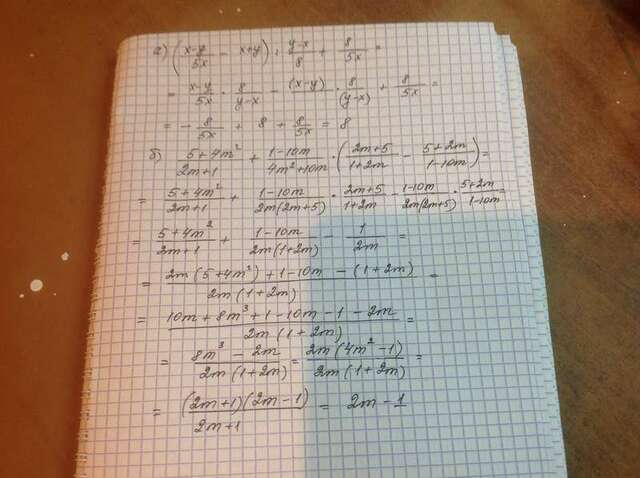 а) ( x-y/5x - x+y ) : y-x/8 + 8/5x =
= x-y/5x · 8/y-x - (x-y) · 8/(y-x) + 8/5x =
= - 8/5x + 8 + 8/5x = 8
б) 5+4m²/2m+1 + 1-10m/4m²+10m · ( 2m+5/1+2m - 5+2m/1-10m ) =
= 5+4m²/2m+1 + 1-10m/2m(2m+5) · 2m+5/1+2m - 1-10m/2m(2m+5) · 5+2m/1-10m =
= 5+4m²/2m+1 + 1-10m/2m(1+2m) - 1/2m =
= 2m(5+4m²)+1-10m-(1+2m)/2m(1+2m) =
= 10m+8m³+1-10m-1-2m/2m(1+2m) =
= 8m³-2m/2m(1+2m) = 2m(4m²-1)/2m(1+2m) =
= (2m+1)(2m-1)/2m+1 = 2m-1